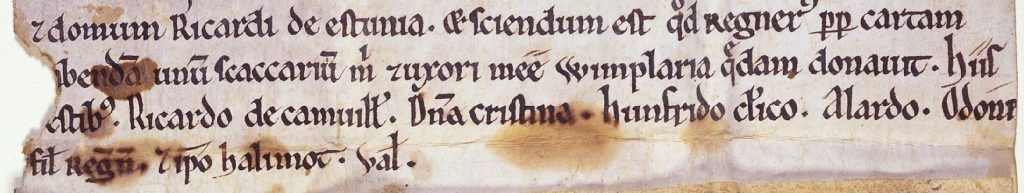 ⁊ domum Ricardi de estunia. & sciendum est qđ Regnerꝰ ꝓp cartam
ibendā unū scaccariū m̍ ⁊ uxori meē Wimplaria qᷓdam donauit. Hiis
estibꝰ. Ricardo de camuill̃. Dn̄a cristina. Hunfrido cl̃ico. Alardo. Odone
fil̃ Regn̄. ⁊ ip̄o halimot. Val̃.